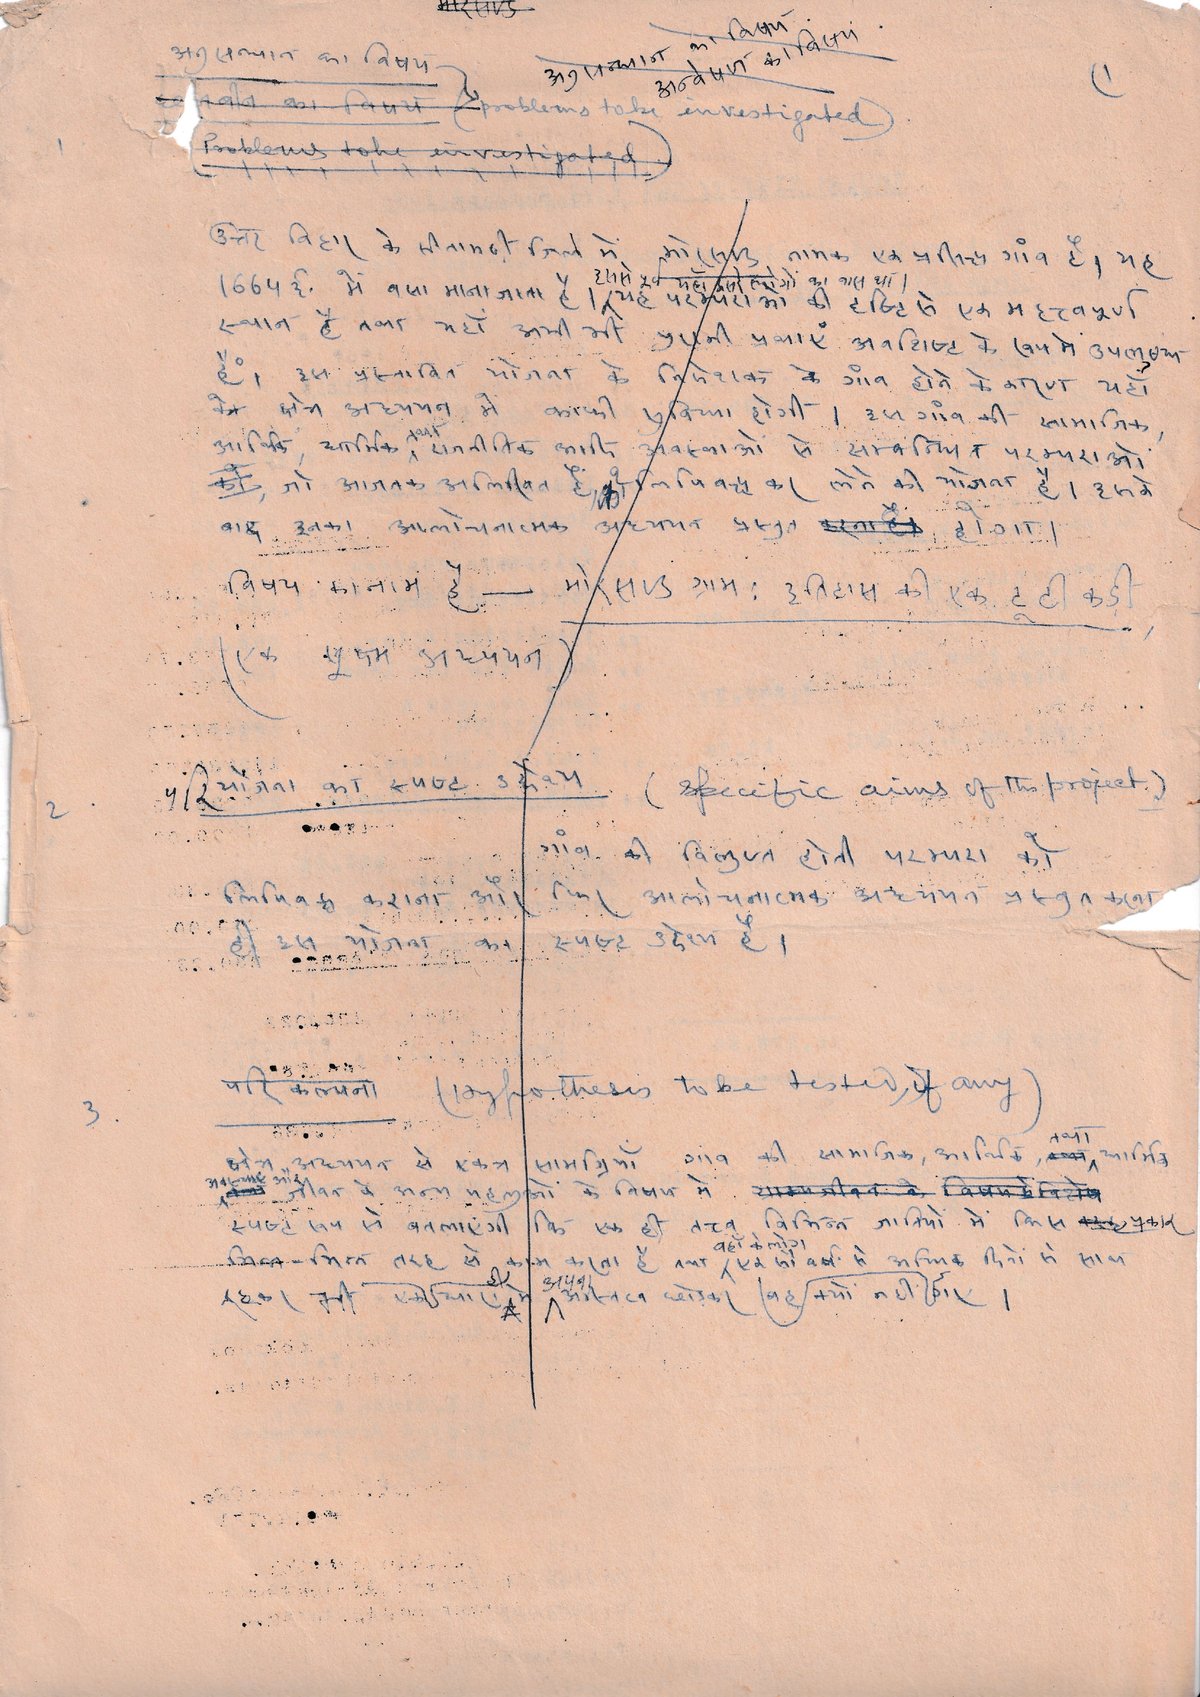 मोरसण्ड
अनुसन्धान का विषय
अनुसन्धान का विषय
अन्वेषण का विषय
(1
का विषय (problems to be investigated)
1
(Problems to be investigated)
उत्तर बिहार के सीतामढ़ी जिले में मोरसण्ड नामक एक प्रसिद्ध गाँव है। यह
इससे पूर्व यहाँ लोगों का वास था।
1664 ई. में बसा माना जाता है। यह परम्पराओं की दृष्टि से एक महत्वपूर्ण
स्थान है तथा यहाँ अभी भी पुरानी प्रथाएँ अवशिष्ट के रूप में उपलब्ध
हैं। इस प्रस्तावित योजना के निदेशक के गाँव होने के कारण यहाँ
के क्षेत्र अध्ययन में काफी सुविधा होगी। इस गाँव की सामाजिक,
आर्थिक, धार्मिक, तथा राजनीतिक आदि अवस्थाओं से सम्बन्धित परम्पराओं
को, जो आजतक अलिखित हैं, लिपिबद्ध कर लेने की योजना है। इसके
बाद इनका आलोचनात्मक अध्ययन प्रस्तुत करना है। होगा।
विषय का नाम है — मोरसण्ड ग्राम : इतिहास की एक टूटी कड़ी
(एक सूक्ष्म अध्ययन)
2. परियोजना का स्पष्ट उद्देश्य (Specific aims of the project)
गाँव की विलुप्त होती परम्परा को
लिपिबद्ध कराना और फिर आलोचनात्मक अध्ययन प्रस्तुत करना
ही इस योजना का स्पष्ट उद्देश्य है।
3. परिकल्पना (Hypothesis to be tested, if any)
क्षेत्र अध्ययन से एकत्र सामग्रियाँ गाँव की सामाजिक, आर्थिक, तथा धार्मिक
जीवन के अन्य पहलुओं के विषय में
स्पष्ट रूप से बतलाएगी कि एक ही तत्व विभिन्न जातियों में किस प्रकार
वहाँ के लोग
भिन्न-भिन्न तरह से काम करता है तथा एक सौ वर्ष से अधिक दिनों से साथ
रहकर भी अपना अस्तित्व खोकर नहीं